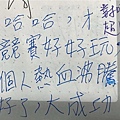 哈哈,才
競賽好好玩
個人熱血沸騰
好了,大成功
超